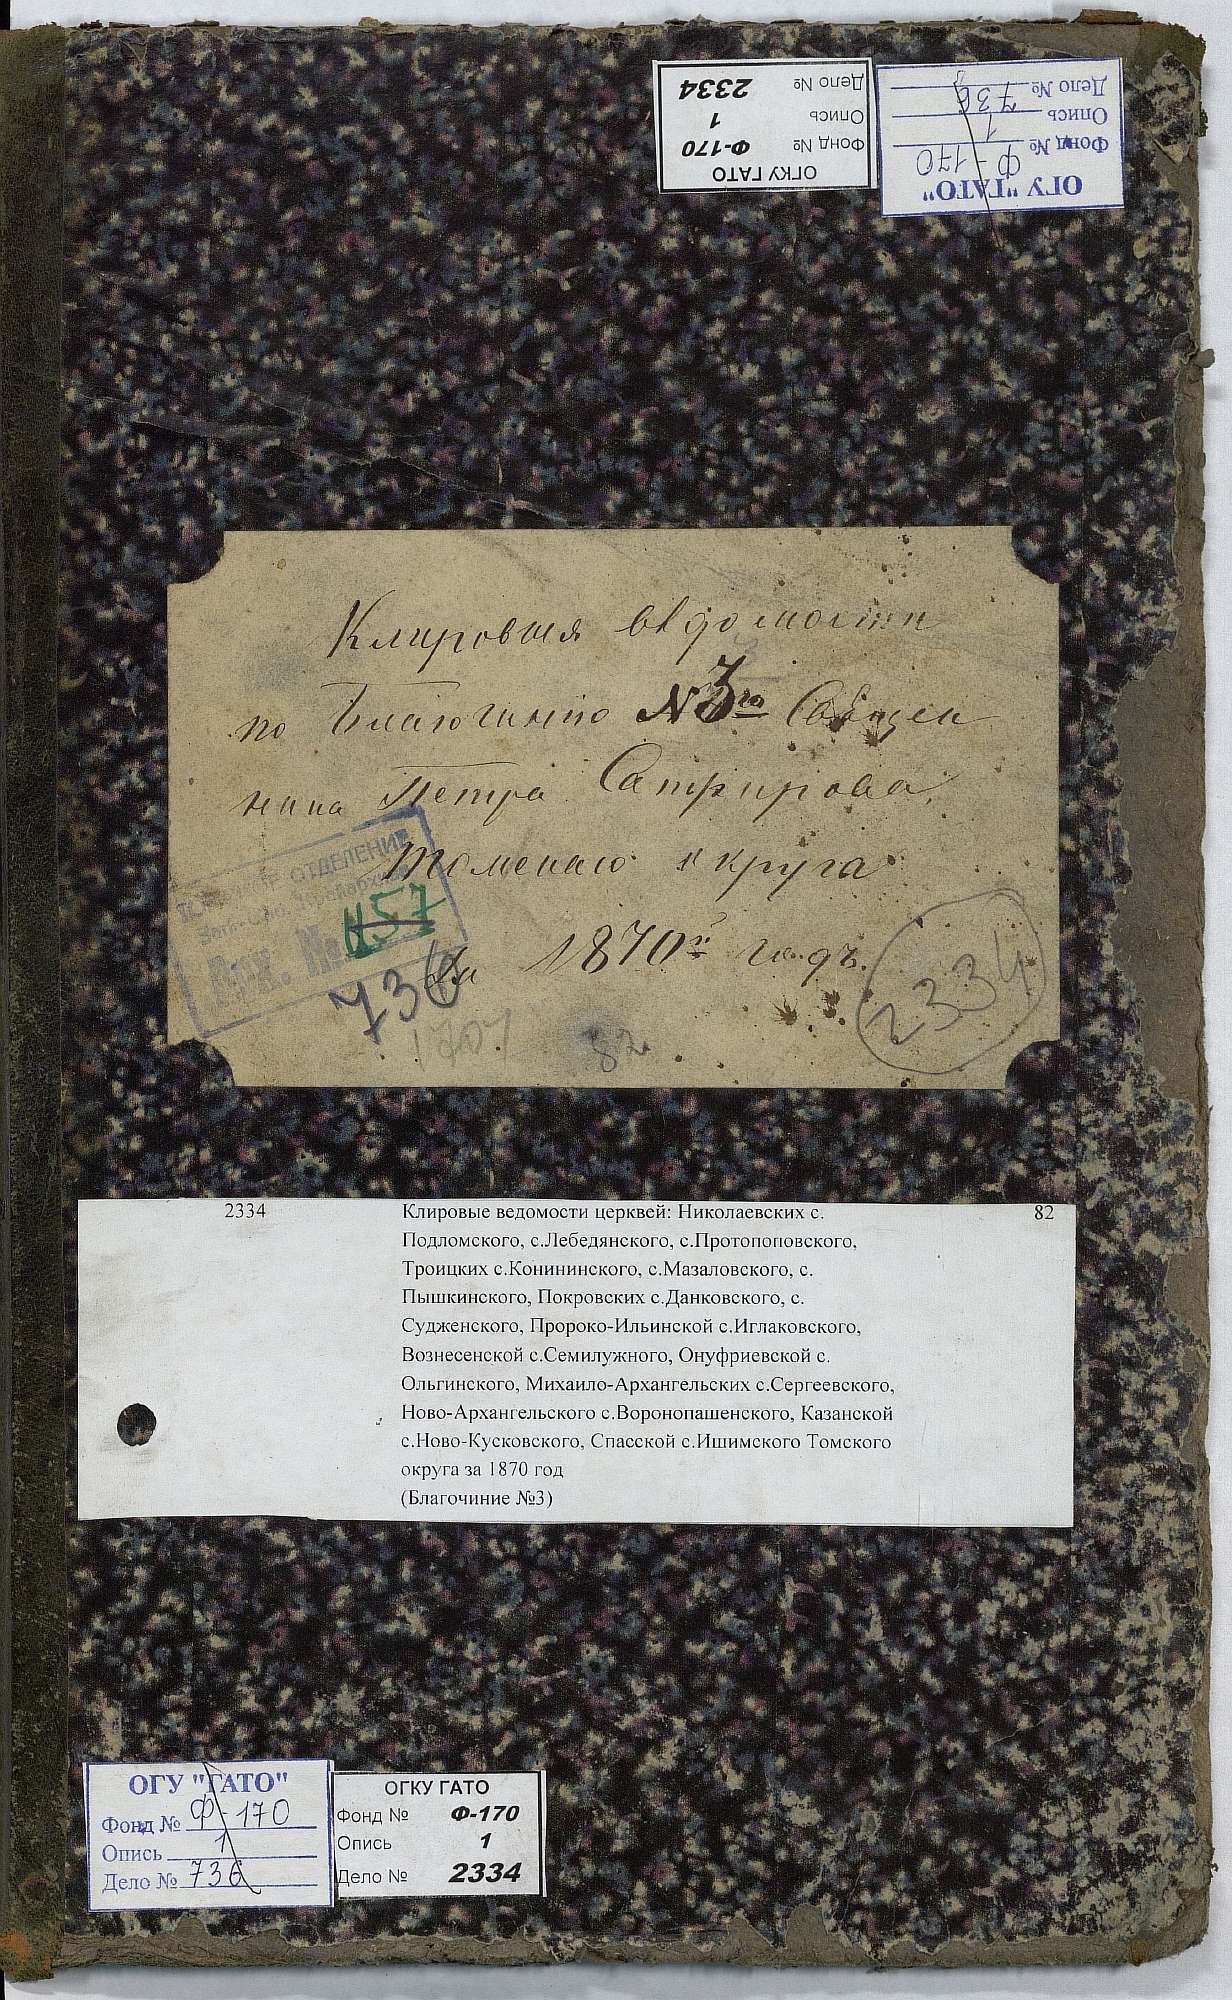 ОГКУ ГАТО
Фонд № Ф-170
Опись 1
Дело № 2334
ОГУ "ГАТО"
Фонд № Ф-170
Опись 1
Дело № 736
Клировыя вѣдомости
по Благочинію № 3го Священ
ника Петра Сапфирова
Томскаго округа
За 1870й годъ.
ОТДЕЛЕНИЕ
Арх. №
457
736
1707
82
2334
2334
Клировые ведомости церквей: Николаевских с.
82
Подломского, с.Лебедянского, с.Протопоповского,
Троицких с.Конининского, с.Мазаловского, с.
Пышкинского, Покровских с.Данковского, с.
Судженского, Пророко-Ильинской с.Иглаковского,
Вознесенской с.Семилужного, Онуфриевской с.
Ольгинского, Михаило-Архангельских с.Сергеевского,
Ново-Архангельского с.Воронопашенского, Казанской
с.Ново-Кусковского, Спасской с.Ишимского Томского
округа за 1870 год
(Благочиние №3)
ОГУ "ГАТО"
Фонд № Ф-170
Опись 1
Дело № 736
ОГКУ ГАТО
Фонд № Ф-170
Опись 1
Дело № 2334